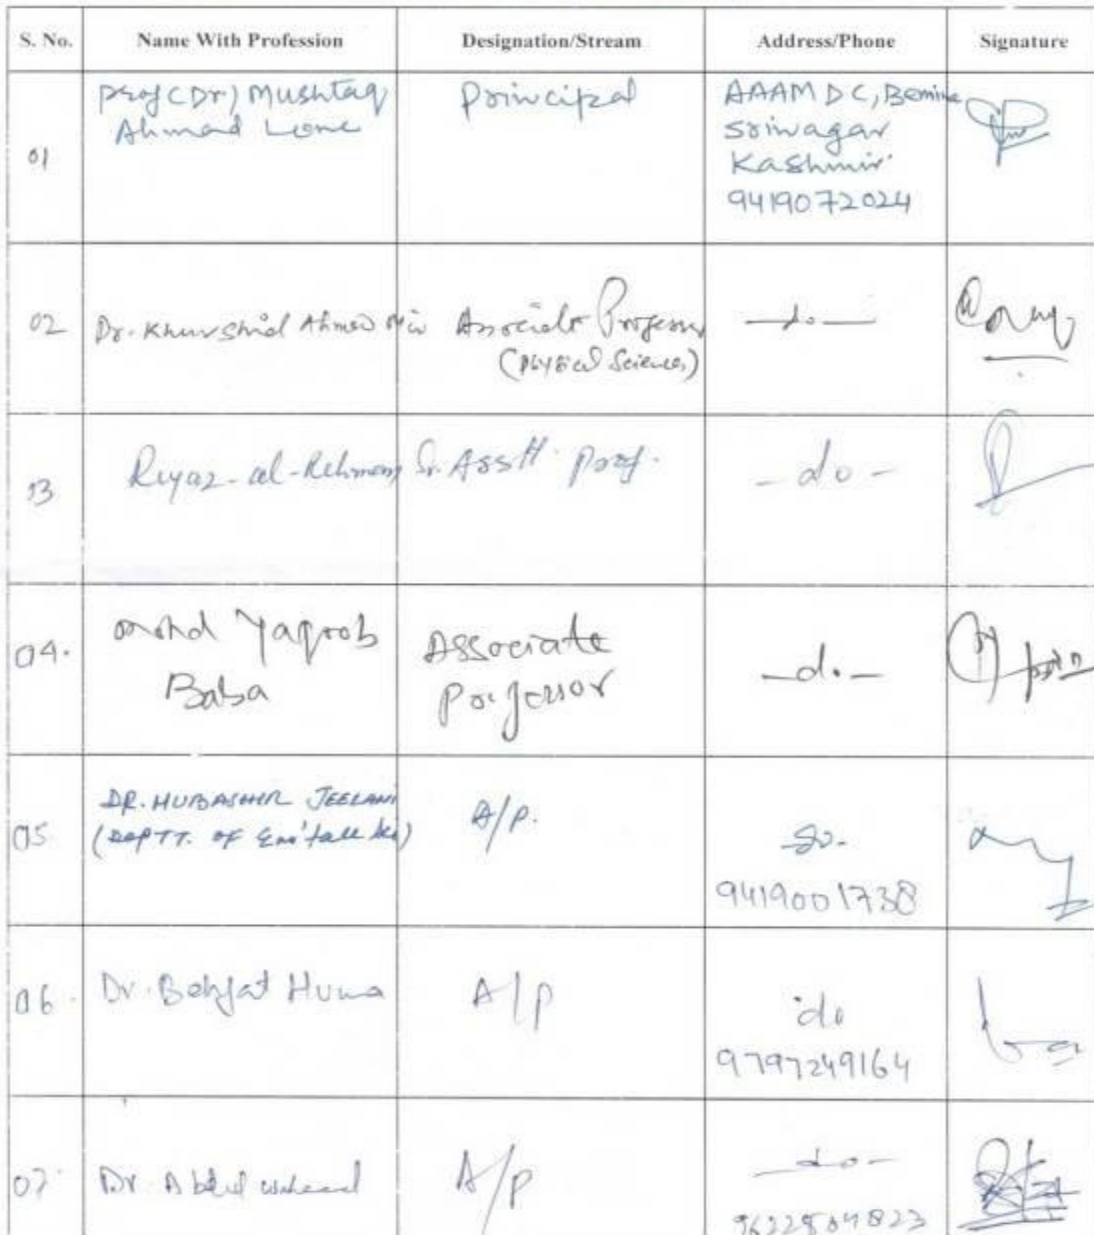 S. No. Name With Profession Designation/Stream Address/Phone Signature
01 Prof (Dr) Mushtaq Ahmad Lone Principal AAAMDC, Bemina
Srinagar
Kashmir
9419072024
02 Dr. Khurshid Ahmad Mir Associate Professor
(Physical Sciences) -do-
03 Riyaz-ul-Rehman Sr. Asstt. Prof. -do-
04. Mohd Yaqoob
Baba Associate
Professor -do-
05 DR. MUBASHIR JEELANI
(DEPTT. OF A/P. -do-
9419001738
06. Dr. Behjat Huma A/P do
9797249164
07. Dr. Abdul A/P -do-